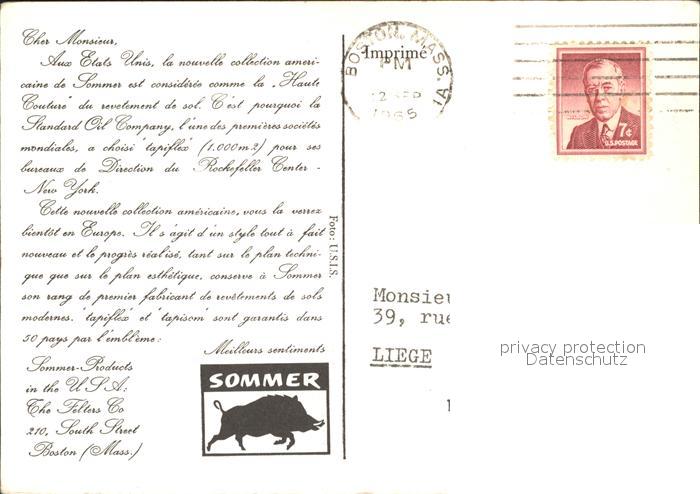 Cher Monsieur,
Aux Etats Unis, la nouvelle collection ameri-
caine de Sommer est considérée comme la „Haute
Couture" du revetement de sol. C'est pourquoi la
Standard Oil Company, l'une des premières sociétés
mondiales, a choisi "tapiflex" (1.000m2) pour ses
bureaux de Direction du Rockefeller Center -
New York.
Cette nouvelle collection américaine, vous la verrez
bientôt en Europe. Il s'agit d'un style tout à fait
nouveau et le progrès réalisé, tant sur le plan techni-
que que sur le plan esthétique, conserve à Sommer
son rang de premier fabricant de revêtements de sols
modernes. "tapiflex" et "tapisom" sont garantis dans
50 pays par l'emblème:
Meilleurs sentiments
Sommer-Products
in the U S A:
The Felters Co
210, South Street
Boston (Mass.)
SOMMER
Foto: U.S.I.S.
Imprimé
BOSTON, MASS.
PM
1965
7¢
U.S. POSTAGE
Monsieu
39, rue
LIEGE
privacy protection
Datenschutz